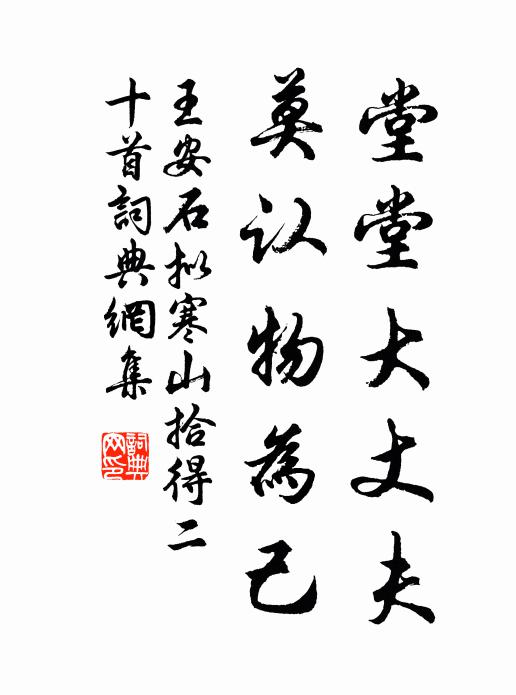 堂堂大丈夫
莫认物為己
王安石拟寒山拾得二
十首詞典網集
詞典網印